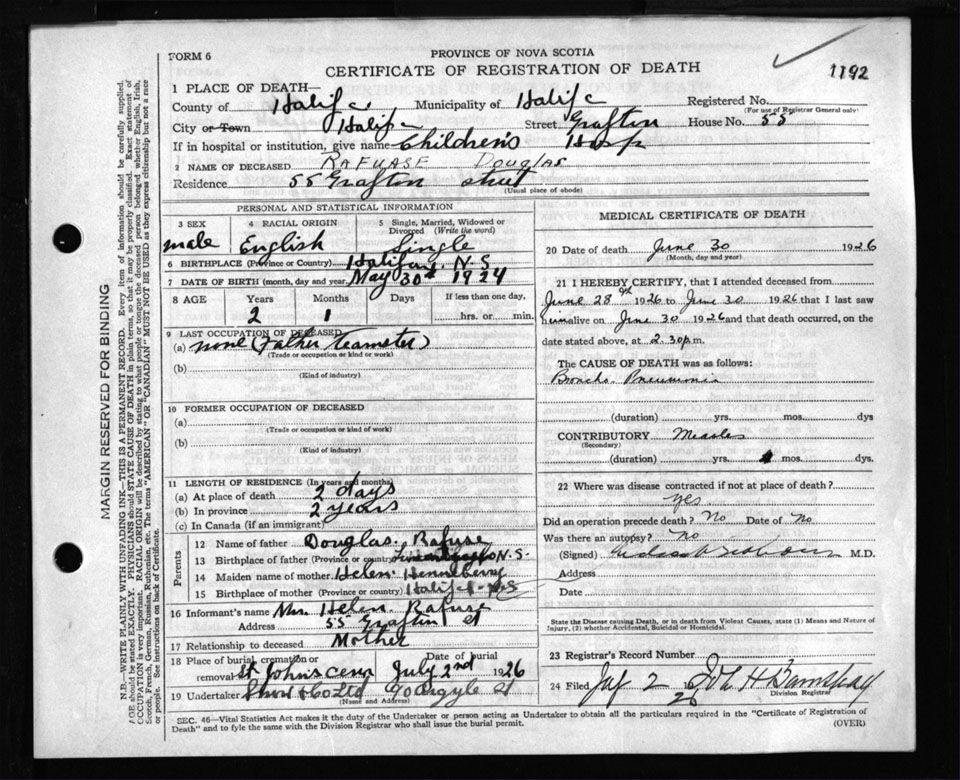 FORM 6
PROVINCE OF NOVA SCOTIA
CERTIFICATE OF REGISTRATION OF DEATH
1192
1 PLACE OF DEATH—
County of Halifax Municipality of Halifax Registered No.
(For use of Registrar General only)
City or Town Halifax Street Grafton House No. 55
If in hospital or institution, give name Children's Hosp
2 NAME OF DECEASED RAFUASE DOUGLAS
Residence 55 Grafton street
(Usual place of abode)
PERSONAL AND STATISTICAL INFORMATION
3 SEX 4 RACIAL ORIGIN 5 Single, Married, Widowed or Divorced (Write the word)
male English Single
6 BIRTHPLACE (Province or Country) Halifax, N.S.
7 DATE OF BIRTH (month, day and year) May 30th 1924
8 AGE Years Months Days If less than one day,
2 1 hrs. or min.
9 LAST OCCUPATION OF DECEASED
(a) none (Father Teamster)
(Trade or occupation or kind or work)
(b)
(Kind of industry)
10 FORMER OCCUPATION OF DECEASED
(a)
(Trade or occupation or kind or work)
(b)
(Kind of industry)
11 LENGTH OF RESIDENCE (In years and months)
(a) At place of death 2 days
(b) In province 2 years
(c) In Canada (if an immigrant)
Parents
12 Name of father Douglas Rafuse
13 Birthplace of father (Province or country) N.S.
14 Maiden name of mother Helen Henneberry
15 Birthplace of mother (Province or country) Halifax N.S
16 Informant's name Mrs Helen Rafuse
Address 55 Grafton st
17 Relationship to deceased Mother
18 Place of burial, cremation or removal St. John's cem Date of burial July 2nd 1926
19 Undertaker Snow & Co Ltd 90 Argyle st
(Name and Address)
MEDICAL CERTIFICATE OF DEATH
20 Date of death June 30 1926
(Month, day and year)
21 I HEREBY CERTIFY, that I attended deceased from
June 28th 1926 to June 30 1926 that I last saw
him alive on June 30 1926 and that death occurred, on the
date stated above, at 2.30 p.m.
The CAUSE OF DEATH was as follows:
Broncho Pneumonia
(duration) yrs. mos. dys
CONTRIBUTORY Measles
(Secondary)
(duration) yrs. mos. dys
22 Where was disease contracted if not at place of death?
yes
Did an operation precede death? No Date of No
Was there an autopsy? No
(Signed) M.D.
Address
Date
State the Disease causing Death, or in death from Violent Causes, state (1) Means and Nature of
Injury, (2) whether Accidental, Suicidal or Homicidal.
23 Registrar's Record Number
24 Filed 2 26
Division Registrar
SEC. 46—Vital Statistics Act makes it the duty of the Undertaker or person acting as Undertaker to obtain all the particulars required in the "Certificate of Registration of
Death" and to fyle the same with the Division Registrar who shall issue the burial permit. (OVER)
MARGIN RESERVED FOR BINDING
N.B.—WRITE PLAINLY WITH UNFADING INK—THIS IS A PERMANENT RECORD. Every item of information should be carefully supplied.
AGE should be stated EXACTLY. PHYSICIANS should STATE CAUSE OF DEATH in plain terms, so that it may be properly classified. Exact statement of
OCCUPATION is very important. RACIAL ORIGIN will be described by stating to what people or tongue the deceased person belonged whether English, Irish,
Scotch, French, German, Russian, Ruthenian, etc. The terms "AMERICAN" OR "CANADIAN" MUST NOT BE USED as they express citizenship but not a race
or people. See instructions on back of Certificate.